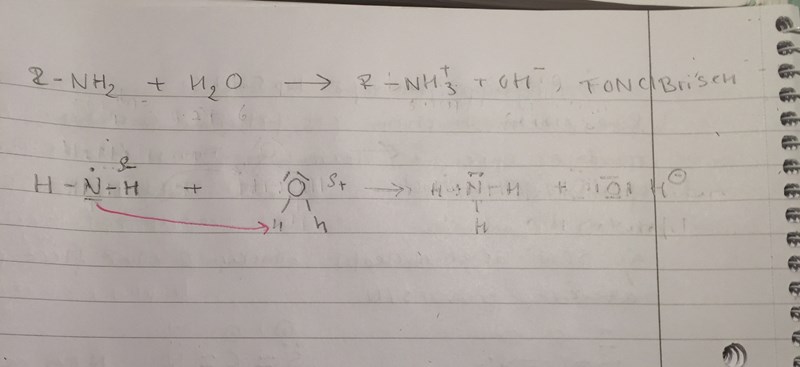 R-NH₂ + H₂O → R-NH₃⁺ + OH⁻, TONCIBrisCH
H-N̈-H δ- + O δ+ → H-N̈-H + |O| H⊖
H H H